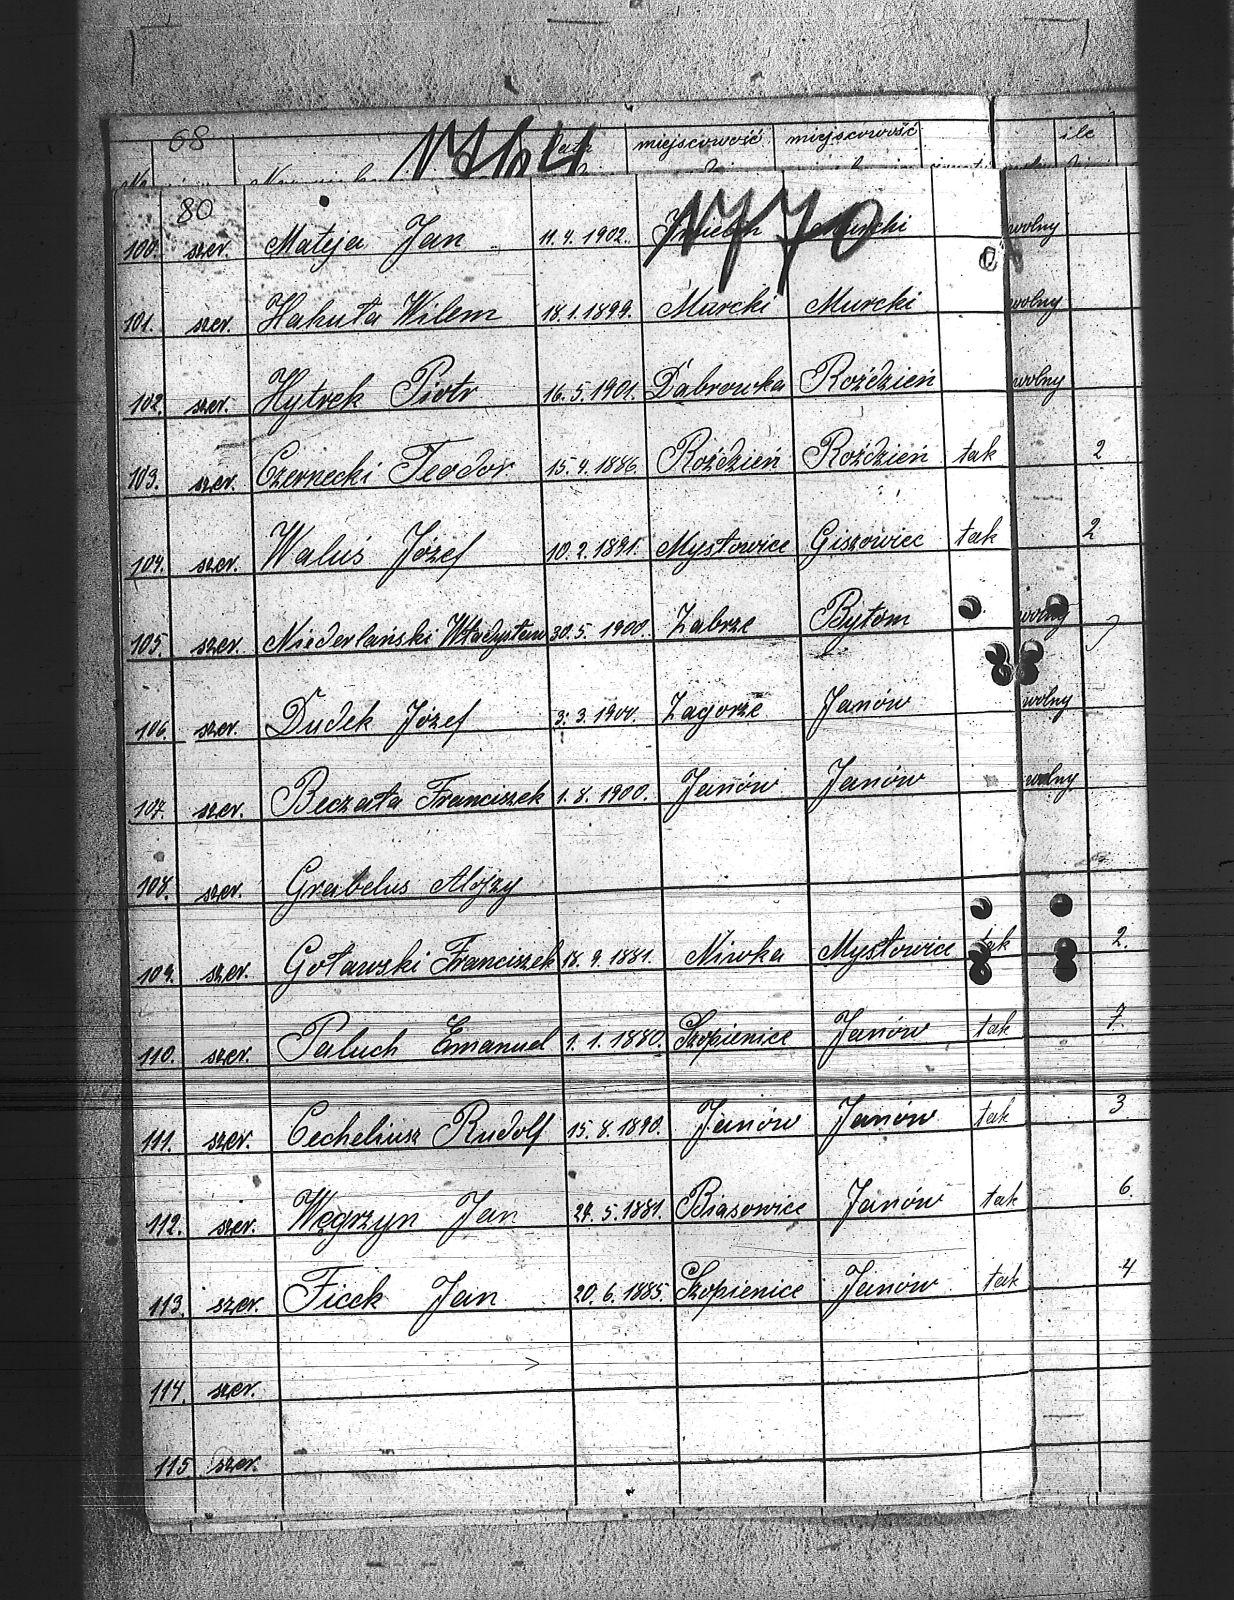 68 1764 miejscowość miejscowość ile
80 1770
100. szer. Mateja Jan 11.4.1902. wolny
101. szer. Hakuta Wilem 18.1.1899. Murcki Murcki wolny
102. szer. Hytrek Piotr 16.5.1901. Dąbrowka Roździeń wolny
103. szer. Czernecki Teodor 15.4.1886. Roździeń Roździeń tak 2
104. szer. Waluś Józef 10.2.1891. Mysłowice Giszowiec tak 2
105. szer. Niederlański Władysław 30.5.1900. Zabrze Bytom wolny
106. szer. Dudek Józef 3.3.1900. Zagorze Janów wolny
107. szer. Beczała Franciszek 1.8.1900. Janów Janów wolny
108. szer. Grabelus Alojzy
109. szer. Goławski Franciszek 18.9.1881. Niwka Mysłowice tak 2.
110. szer. Paluch Emanuel 1.1.1880. Szopienice Janów tak 7.
111. szer. Cecheliusz Rudolf 15.8.1890. Janów Janów tak 3
112. szer. Węgrzyn Jan 27.5.1881. Biasowice Janów tak 6.
113. szer. Ficek Jan 20.6.1885. Szopienice Janów tak 4
114. szer.
115 szer.